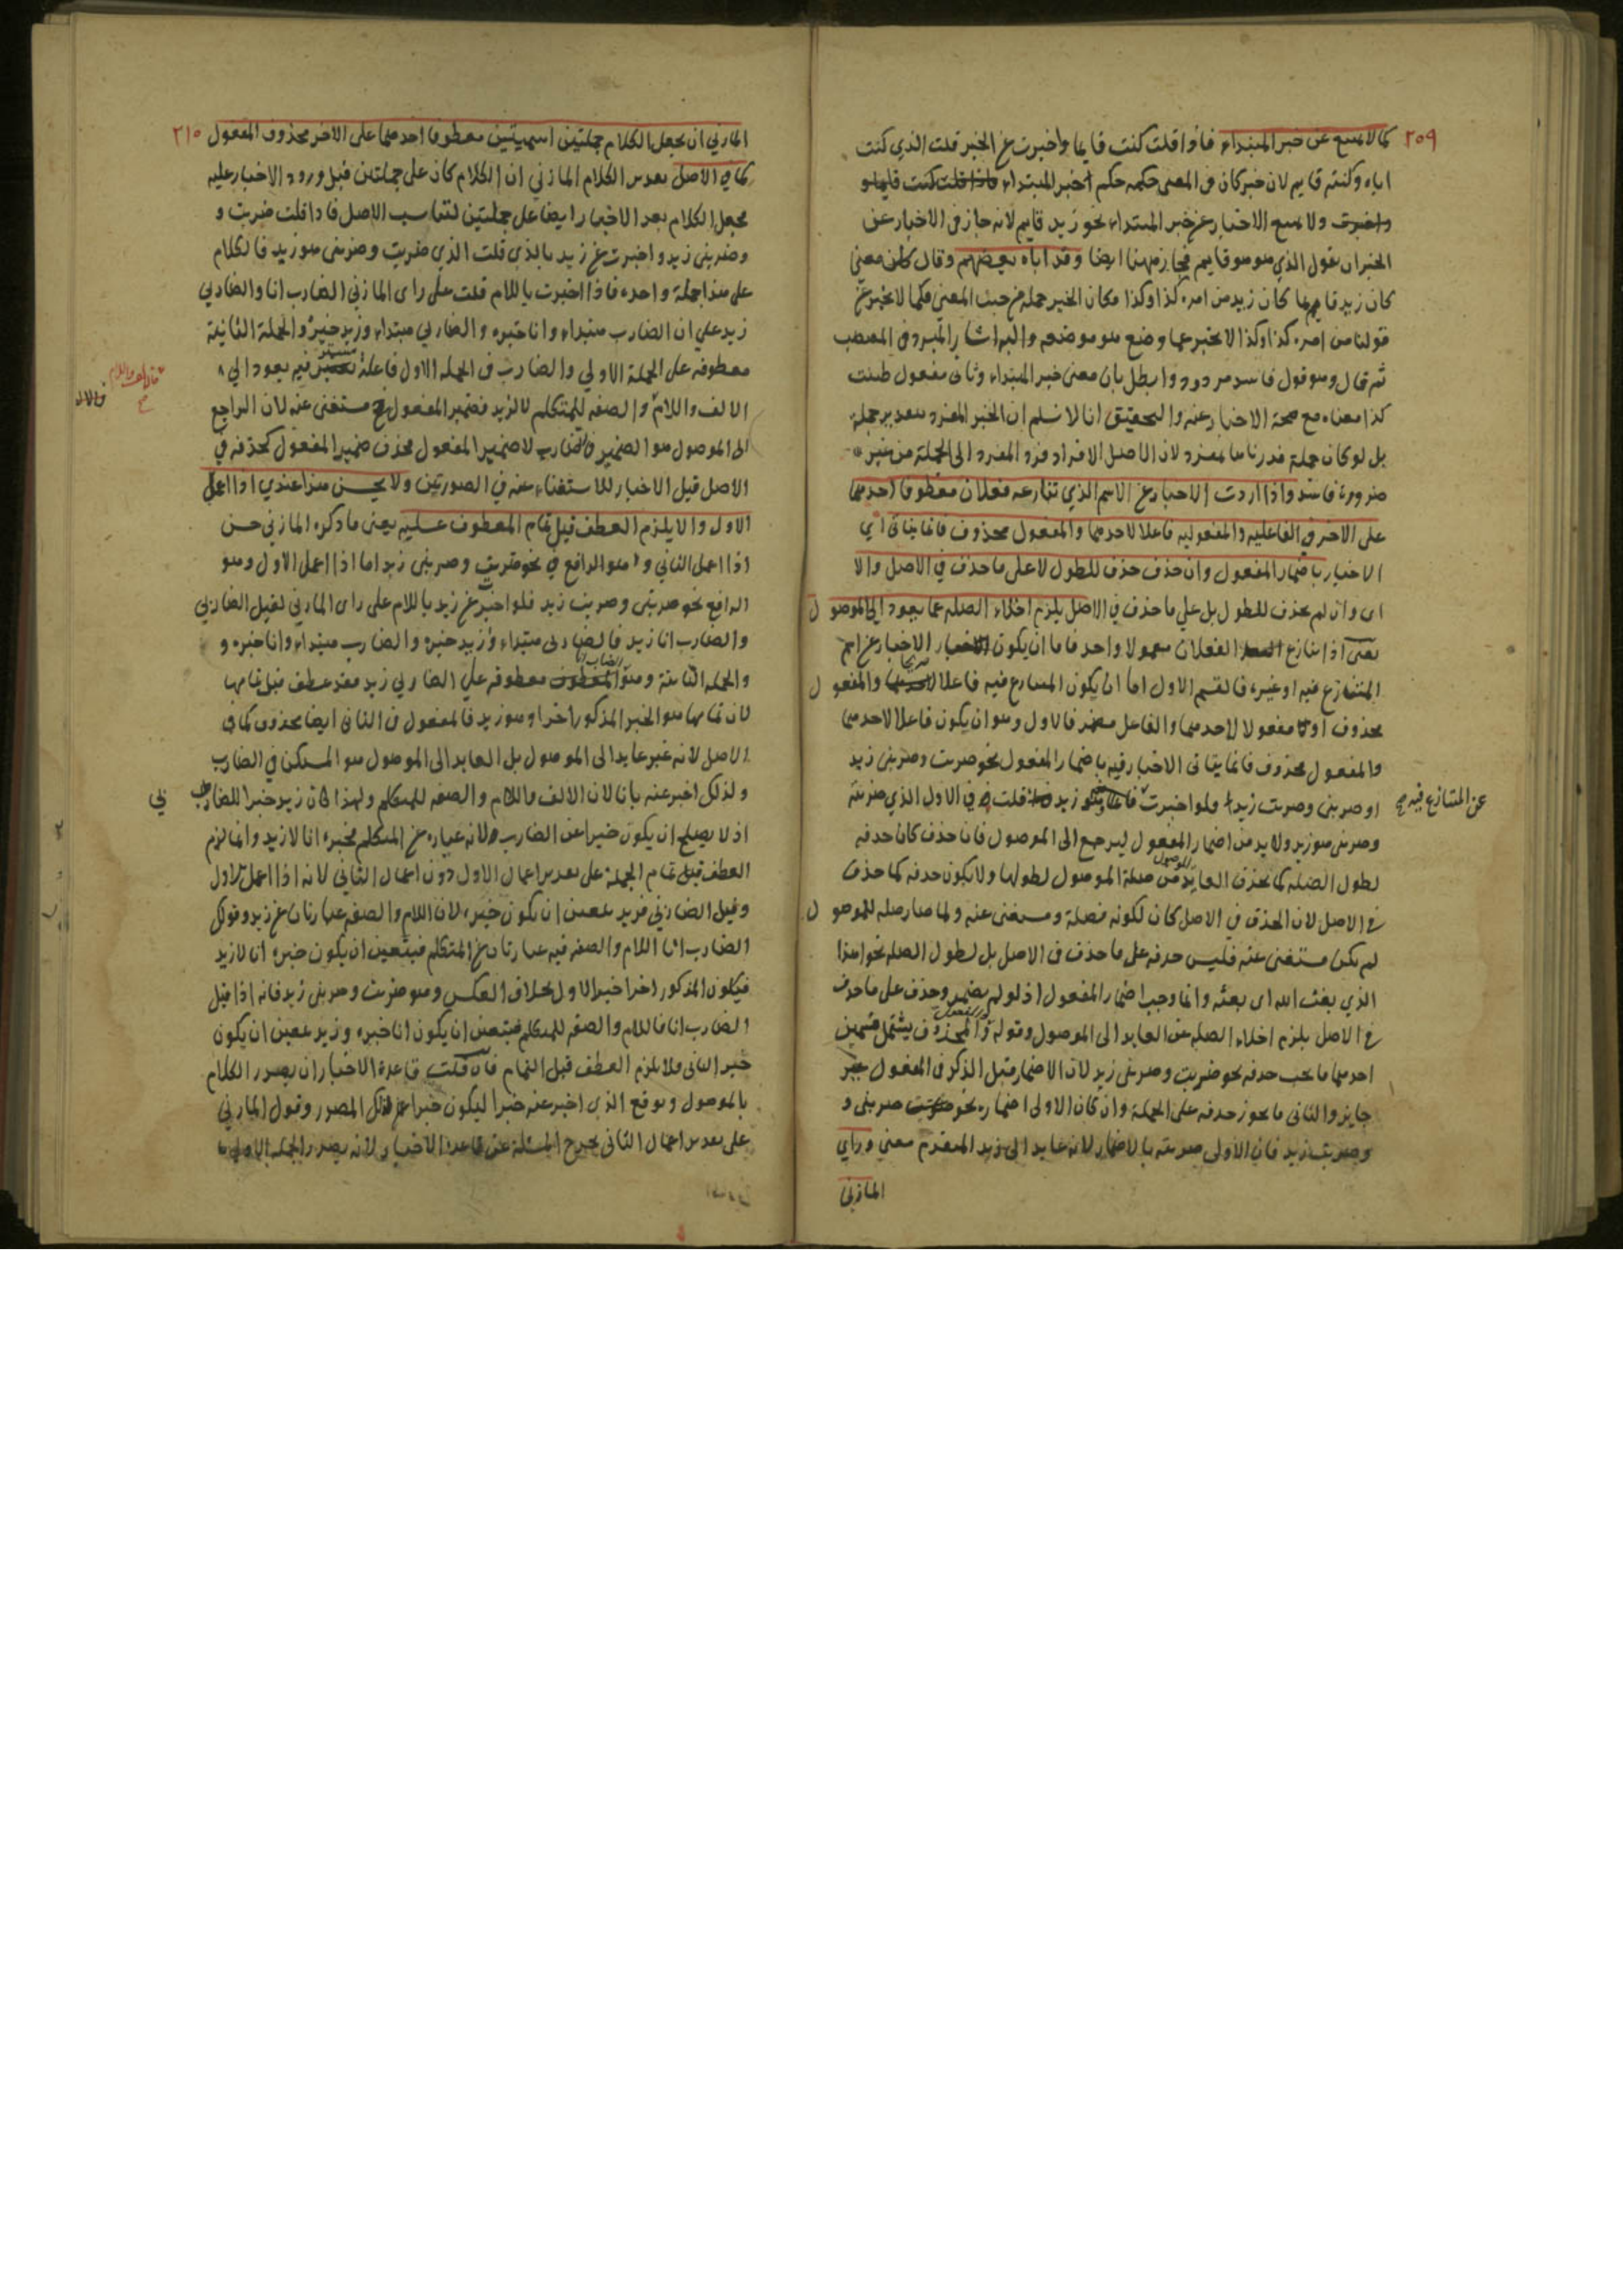 ٢٥٩
كما لا يمتنع عن خبر المبتداء فاذا قلت كنت قايما واخبرت عن الخبر قلت الذي كنت
اياه وكنته قايم لان خبر كان فى المعنى حكمه حكم خبر المبتداء
ولا يمتنع الاخبار عن خبر المبتداء نحو زيد قايم لانه جاز فى الاخبار عن
الخبر ان تقول الذي هو هو قايم فجاز ههنا ايضا وقد اباه بعضهم وقال كان معنى
كان زيد قايما كان زيد من امره كذا وكذا فكان الخبر جملة من حيث المعنى فكما لا يخبر عن
قولنا من امره كذا وكذا لا يخبر عما وضع هو موضعه واليه اشار المبرد فى المقتضب
ثم قال وهو قول فاسد مردود وابطل بان معنى خبر المبتداء وثانى مفعول ظننت
كذا معناه مع صحة الاخبار عنه والتحقيق انا لا نسلم ان الخبر المفرد بتقدير جملة
بل لو كان جملة قدرناها بمفرد لان الاصل الافراد فرد المفرد الى الجملة من غير
ضرورة فاسد واذا اردت الاخبار عن الاسم الذي تنازعه فعلان معطوفا احدهما
على الاخر فى الفاعليه والمفعوليه فاعلا لاحدهما والمفعول محذوف فانما يتاتى
الاخبار باضمار المفعول وان حذف حذف للطول لا على ما حذف في الاصل والا
اى وان لم يحذف للطول بل على ما حذف في الاصل يلزم اخلاء الصلة عما يعود الى الموصول
يعنى اذا تنازع الفعلان معمولا واحد فاما ان يكون الاخبار عن اسم
المتنازع فيه او غيره فالقسم الاول اما ان يكون المتنازع فيه فاعلا والمفعول
محذوف او مفعولا لاحدهما والفاعل مضمر فالاول وهو ان يكون فاعلا لاحدهما
والمفعول محذوف فانما يتاتى الاخبار فيه باضمار المفعول نحو ضربت وضربنى زيد
او ضربنى وضربت زيدا ولو اخبرت زيد قلت في الاول الذي ضربته
عن المتنازع فيه صح
وضربنى هو زيد ولابد من اضمار المفعول ليرجع الى الموصول فان حذف كان حذفه
لطول الصلة كما يحذف العايد من صلة الموصول لطولها ولا يكون حذفه كما حذف
في الاصل لان الحذف في الاصل كان لكونه فضلة ومستغنى عنه ولما صار صلة للموصول
لم يكن مستغنى عنه فليس حذفه على ما حذف فى الاصل بل لطول الصلة نحو اهذا
الذي بعث الله اى بعثه وانما وجب اضمار المفعول اذ لو لم يضمر وحذف على ما حذف
في الاصل يلزم اخلاء الصلة عن العايد الى الموصول وقوله والمفعول محذوف يشتمل قسمين
احدهما ما يجب حذفه نحو ضربت وضربنى زيد لان الاضمار قبل الذكر فى المفعول غير
جايز والثانى ما يجوز حذفه على الجملة وان كان الاولى اضماره نحو ضربنى و
وضربت زيد فان الاولى ضربته بالاضمار لانه عايد الى زيد المتقدم معنى وراي
المازنى
٢١٠
المازني ان يجعل الكلام جملتين اسميتين معطوفا احدهما على الاخر محذوف المفعول
كما في الاصل تقدير الكلام المازني ان الكلام كان على جملتين قبل ورود الاخبار عليه
فجعل الكلام بعد الاخبار ايضا على جملتين لتناسب الاصل فاذا قلت ضربت و
وضربنى زيد واخبرت عن زيد بالذي قلت الذي ضربت وضربنى هو زيد فالكلام
على هذا جملة واحدة فاذا اخبرت باللام قلت على راى المازني الضارب انا والضاربي
زيد على ان الضارب مبتداء وانا خبره والضاربي مبتداء وزيد خبره والجملة الثانية
معطوفه على الجملة الاولي والضارب فى الجملة الاول فاعله مستتر فيه يعود الى
الالف واللام والصفه للمتكلم لا لزيد فضمير المفعول مستغنى عنه لان الراجع
الى الموصول هو الضمير فى الضارب لا ضمير المفعول فحذف ضمير المفعول كحذفه في
الاصل قبل الاخبار للاستغناء عنه في الصورتين ولا يحسن هذا عندي اذا اعمل
الاول والا يلزم العطف قبل تمام المعطوف عليه يعنى ما ذكره المازني حسن
اذا اعمل الثاني وهو الرافع في نحو ضربت وضربنى زيد اما اذا اعمل الاول وهو
الرافع نحو ضربنى وضربت زيد فلو اخبر عن زيد باللام على راى المازني لقيل الضاربي
والضارب انا زيد فالضاربى مبتداء وزيد خبره والضارب مبتداء وانا خبره و
والجملة الثانية وهو الضارب انا معطوفه على الضاربي زيد فقد عطف قبل تمامها
لان تمامها هو الخبر المذكور اخرا وهو زيد فالمفعول فى الثانى ايضا محذوف كما فى
الاصل لانه غير عايد الى الموصول بل العايد الى الموصول هو المستكن في الضارب
ولذلك اخبر عنه بانا لان الالف واللام والصفه للمتكلم ولهذا كان زيد خبرا للضاربي
اذ لا يصلح ان يكون خبرا عن الضارب لانه عباره عن المتكلم فخبره انا لا زيد وانما لزم
العطف قبل تمام الجملة على تقدير اعمال الاول دون اعمال الثاني لانه اذا اعمل الاول
وقيل الضاربي فزيد يتعين ان يكون خبره لان اللام والصفه عبارتان عن زيد وقولك
الضارب انا اللام والصفه فيه عبارتان عن المتكلم فيتعين ان يكون خبره انا لا زيد
فيكون المذكور اخرا خبر الاول بخلاف العكس وهو ضربت وضربنى زيد فانه اذا قيل
الضارب انا فاللام والصفه للمتكلم فيتعين ان يكون انا خبره وزيد يتعين ان يكون
خبر الثانى فلا يلزم العطف قبل التمام فان قلت قاعدة الاخبار ان يصدر الكلام
بالموصول ويوقع الذى اخبر عنه خبرا ليكون خبرا عن ذلك المصدر وقول المازني
على تقدير اعمال الثانى يخرج المسئلة عن قاعدة الاخبار لانه يصدر الجملة الاولى